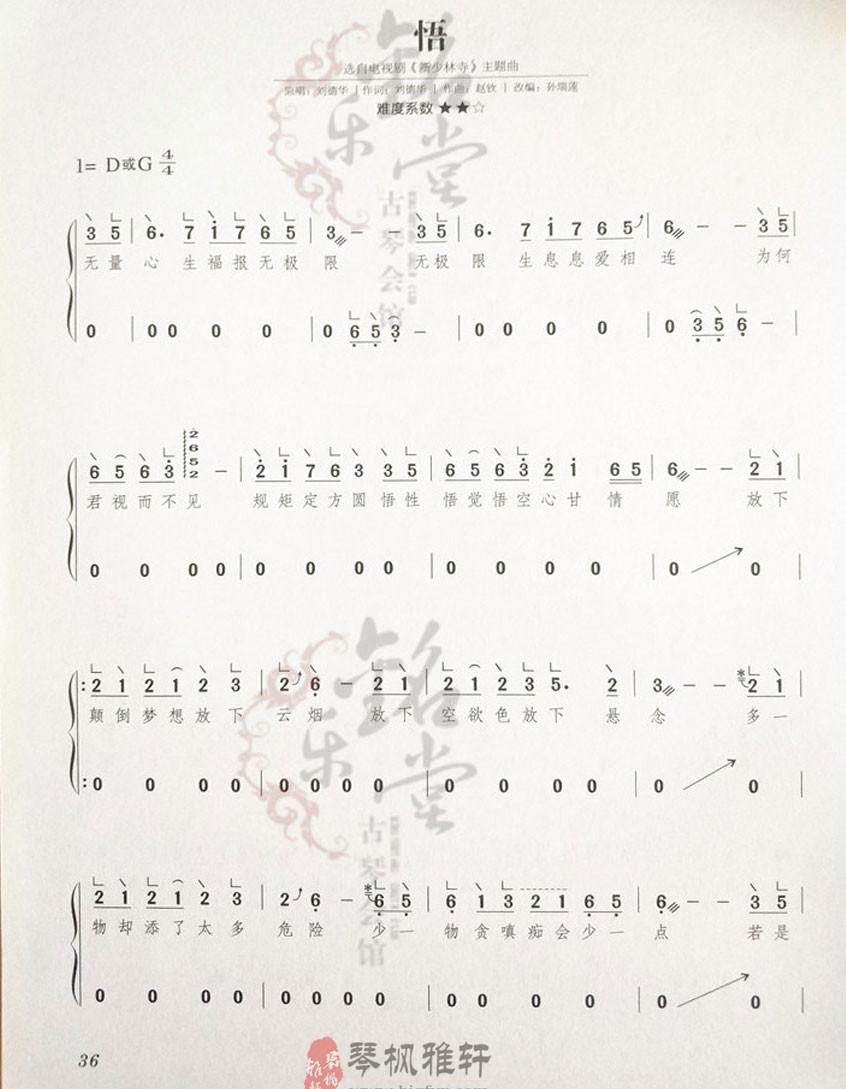 悟
选自电视剧《新少林寺》主题曲
演唱：刘德华 | 作词：刘德华 | 作曲：赵钦 | 改编：孙瑞莲
难度系数 ★★☆
1= D或G 4/4
3 5 | 6. 7 1 7 6 5 | 3 – – 3 5 | 6. 7 1 7 6 5 | 6 – – 3 5 |
无量 心 生福报无极 限 无极 限 生息息爱相 连 为何
0 | 0 0 0 0 | 0 6 5 3 – | 0 0 0 0 | 0 3 5 6 – |
6 5 6 3 2652 – | 2 1 7 6 3 3 5 | 6 5 6 3 2 1 6 5 | 6 – – 2 1 |
君视而不见 规矩定方圆悟性 悟觉悟空心甘 情 愿 放下
0 0 0 0 | 0 0 0 0 | 0 0 0 0 | 0 0 |
: 2 1 2 1 2 3 | 2 6 – 2 1 | 2 1 2 3 5. 2 | 3 – – 2 1 |
颠倒梦想放下 云烟 放下 空欲色放下 悬 念 多一
: 0 0 0 0 | 0 0 0 0 | 0 0 0 0 | 0 0 |
2 1 2 1 2 3 | 2 6 – 6 5 | 6 1 3 2 1 6 5 | 6 – – 3 5 |
物却添了太多 危险 少一 物贪嗔痴会少一 点 若是
0 0 0 0 | 0 0 0 0 | 0 0 0 0 | 0 0 |
36
琴枫雅轩
铭乐堂
古琴会馆
铭乐堂
古琴会馆